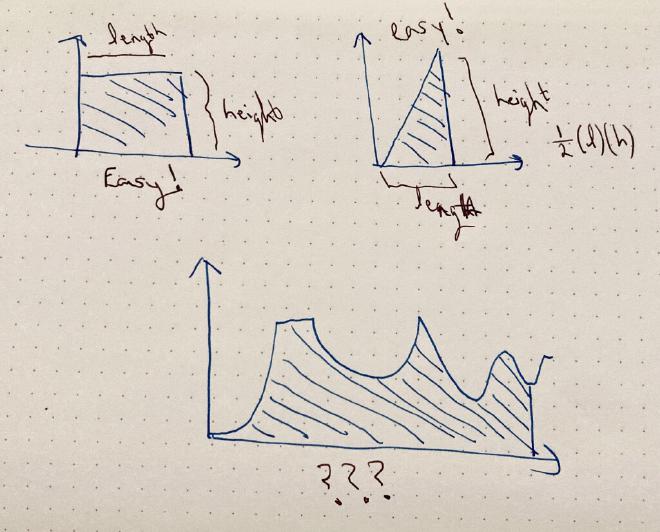 length
height
Easy!
easy!
height
length
½(l)(h)
???